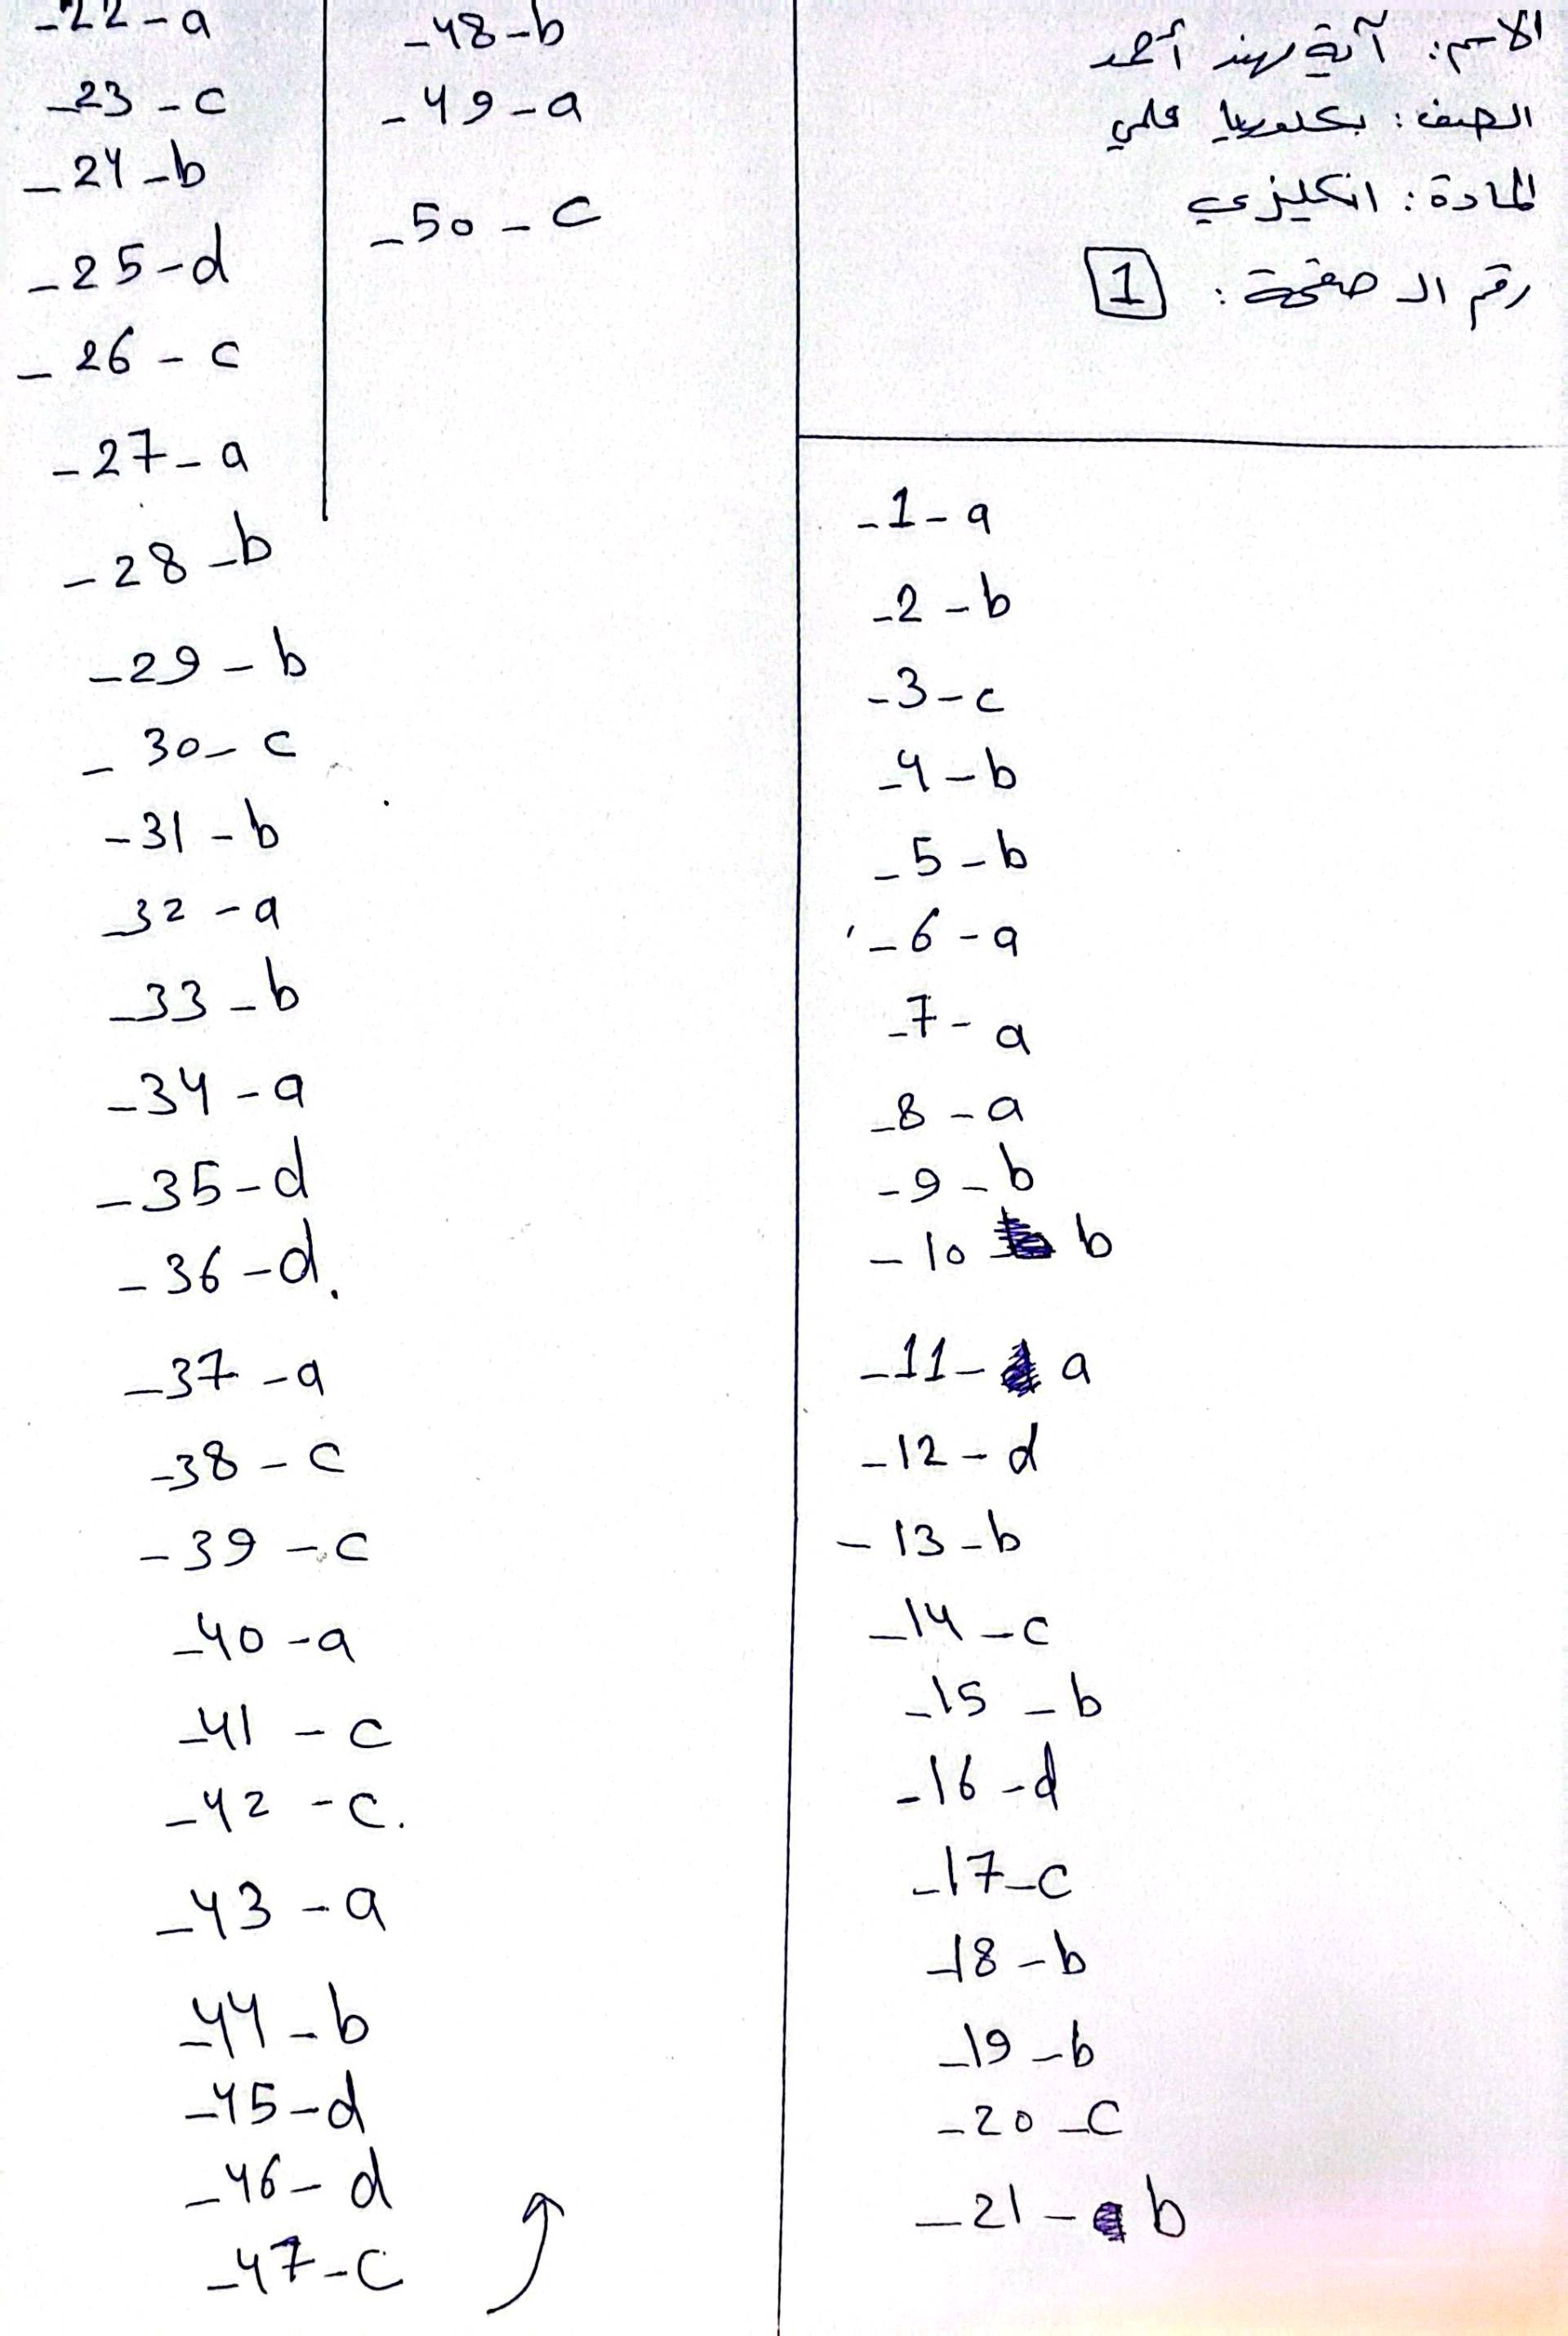 الاسم: آية مهند أحمد
الصف: بكلوريا علمي
المادة: انكليزي
رقم الـ صفحة: 1
-1-a
-2-b
-3-c
-4-b
-5-b
-6-a
-7-a
-8-a
-9-b
-10 b
-11-a
-12-d
-13-b
-14-c
-15-b
-16-d
-17-c
-18-b
-19-b
-20-c
-21-b
-22-a
-23-c
-24-b
-25-d
-26-c
-27-a
-28-b
-29-b
-30-c
-31-b
-32-a
-33-b
-34-a
-35-d
-36-d.
-37-a
-38-c
-39-c
-40-a
-41-c
-42-c.
-43-a
-44-b
-45-d
-46-d
-47-c
-48-b
-49-a
-50-c